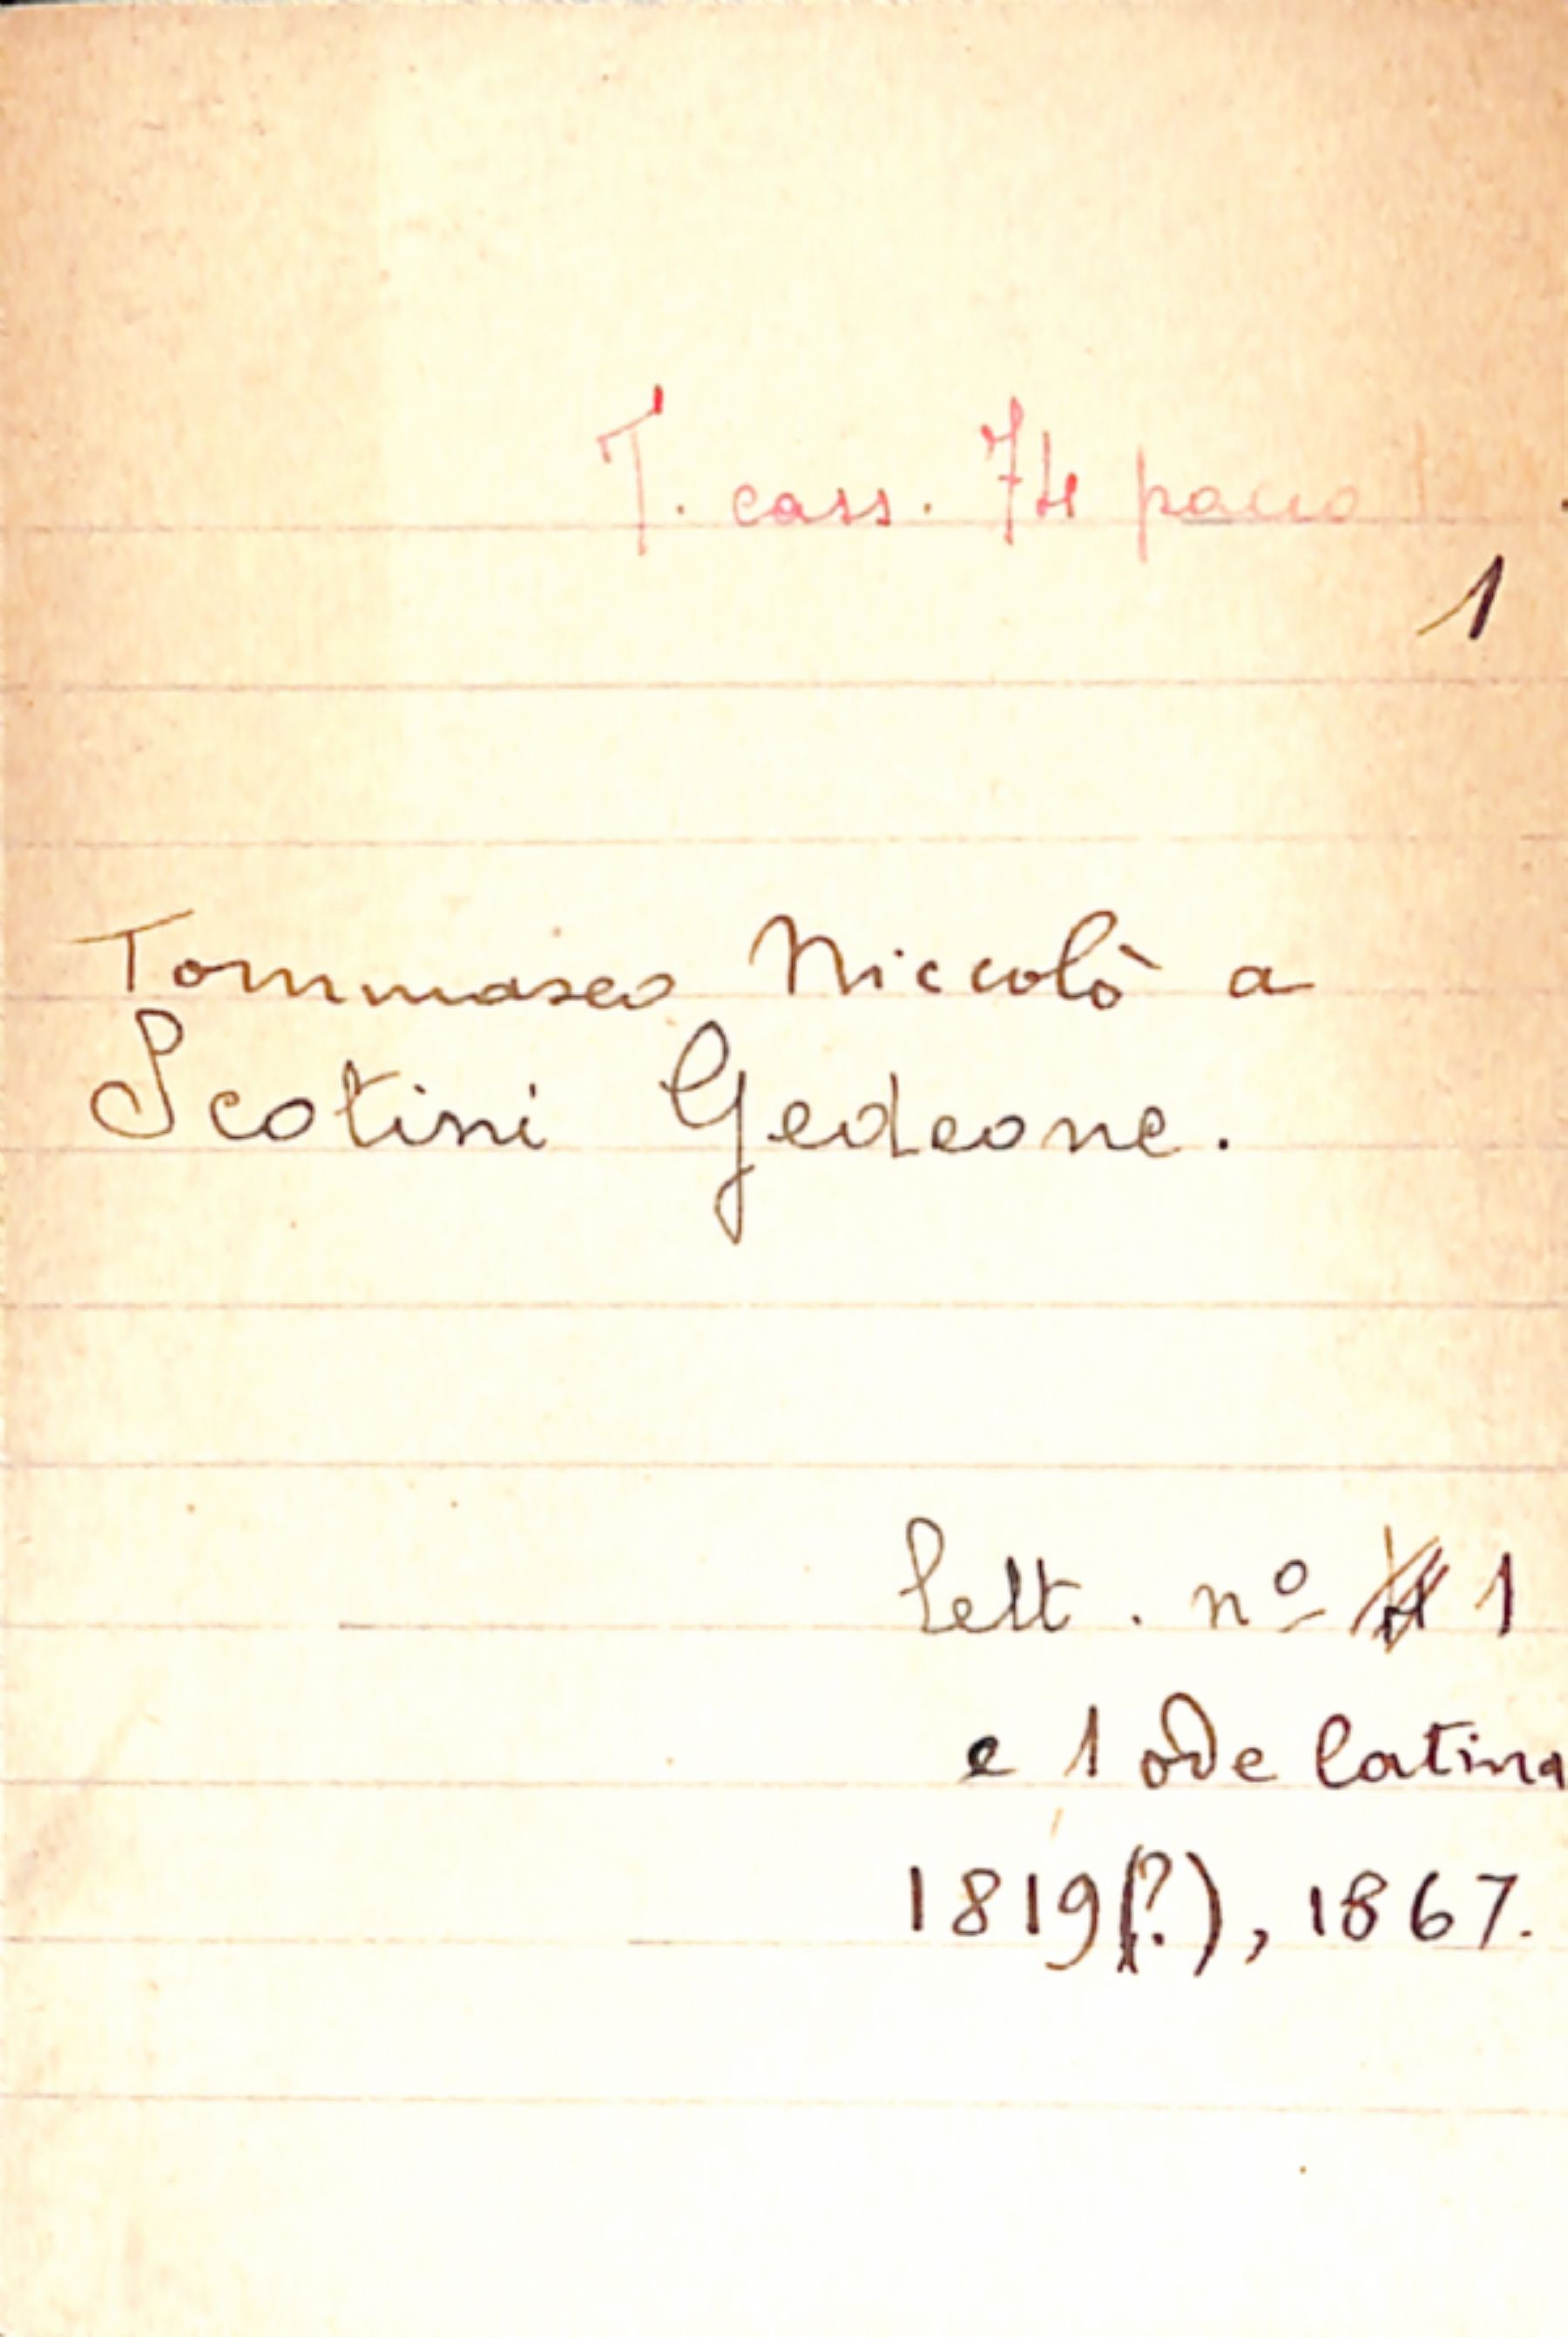 T. cass. 74 pacco
1
Tommaseo Niccolò a
Scotini Gedeone.
lett. nº 1
e 1 ode latina
1819(?), 1867.